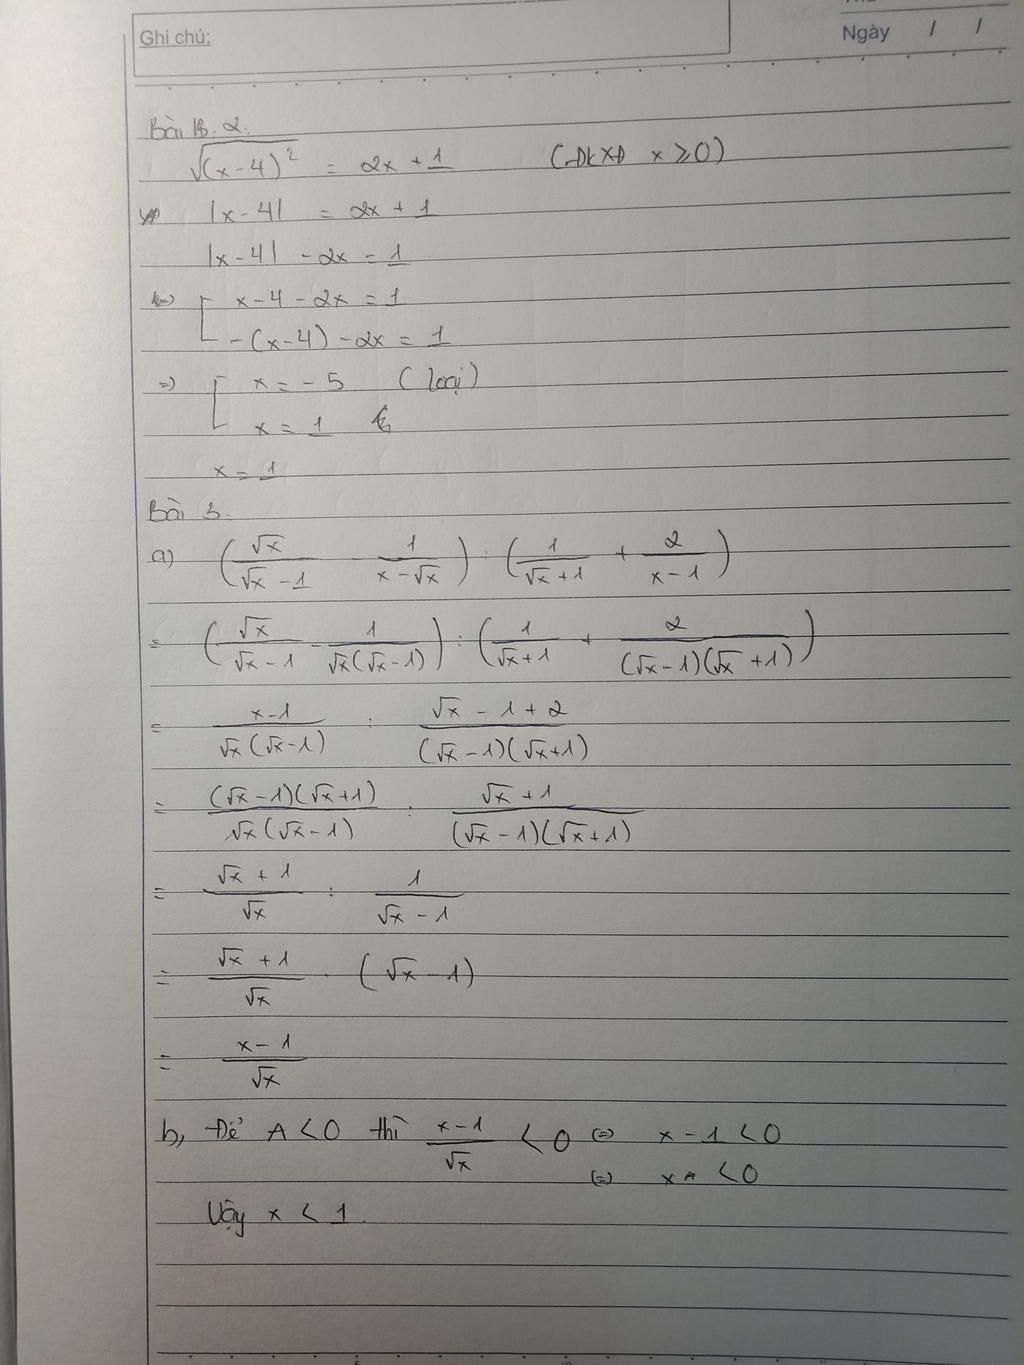 Ghi chú:
Ngày / /
Bài 2.
√(x-4)² = 2x + 1 (ĐKXĐ x ≥ 0)
|x-4| = 2x + 1
|x-4| - 2x = 1
[ x - 4 - 2x = 1
-(x-4) - 2x = 1
=> [ x = -5 (loại)
x = 1
x = 1
Bài 3.
a) (√x/(√x - 1) - 1/(x - √x)) : (1/(√x + 1) + 2/(x - 1))
= (√x/(√x - 1) - 1/(√x(√x - 1))) : (1/(√x + 1) + 2/((√x - 1)(√x + 1)))
= (x-1)/(√x(√x - 1)) : (√x - 1 + 2)/((√x - 1)(√x + 1))
= ((√x - 1)(√x + 1))/(√x(√x - 1)) : (√x + 1)/((√x - 1)(√x + 1))
= (√x + 1)/√x : 1/(√x - 1)
= (√x + 1)/√x · (√x - 1)
= (x - 1)/√x
b, Để A < 0 thì (x - 1)/√x < 0 (=) x - 1 < 0
(=) x < 0
Vậy x < 1.